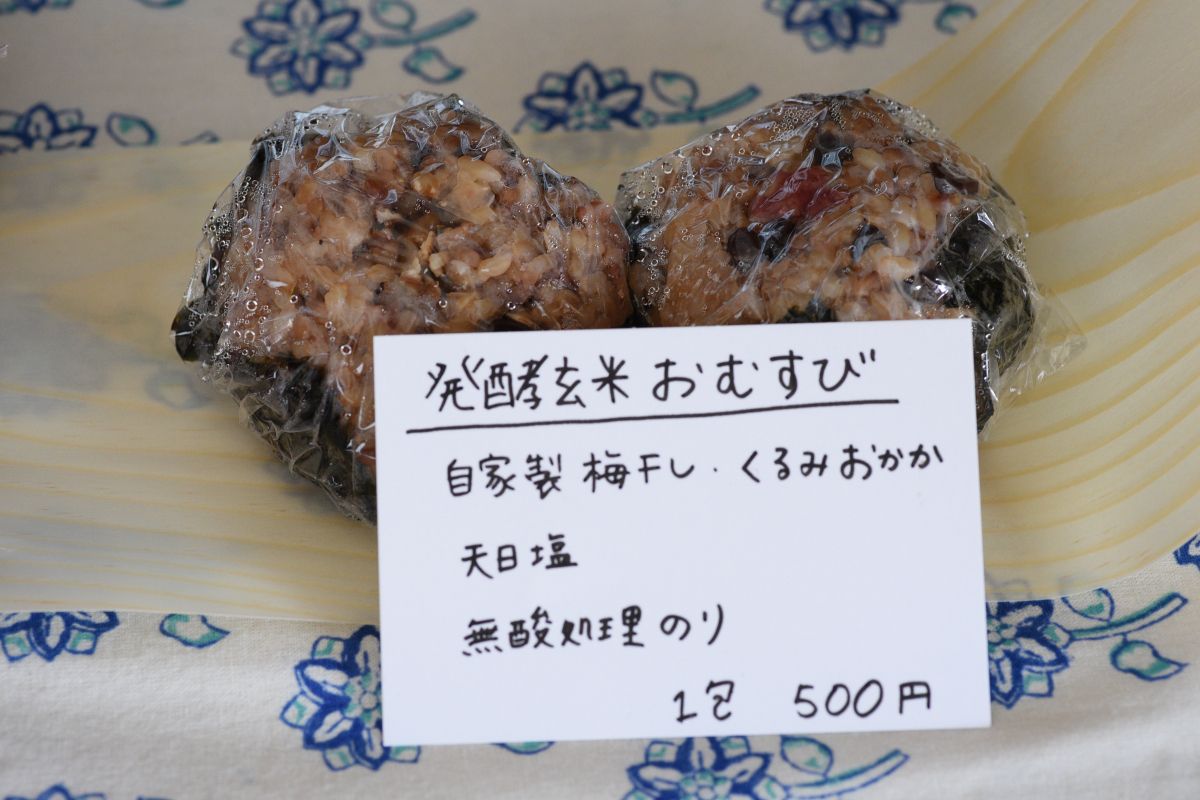 発酵玄米おむすび
自家製梅干し・くるみおかか
天日塩
無酸処理のり
1包 500円